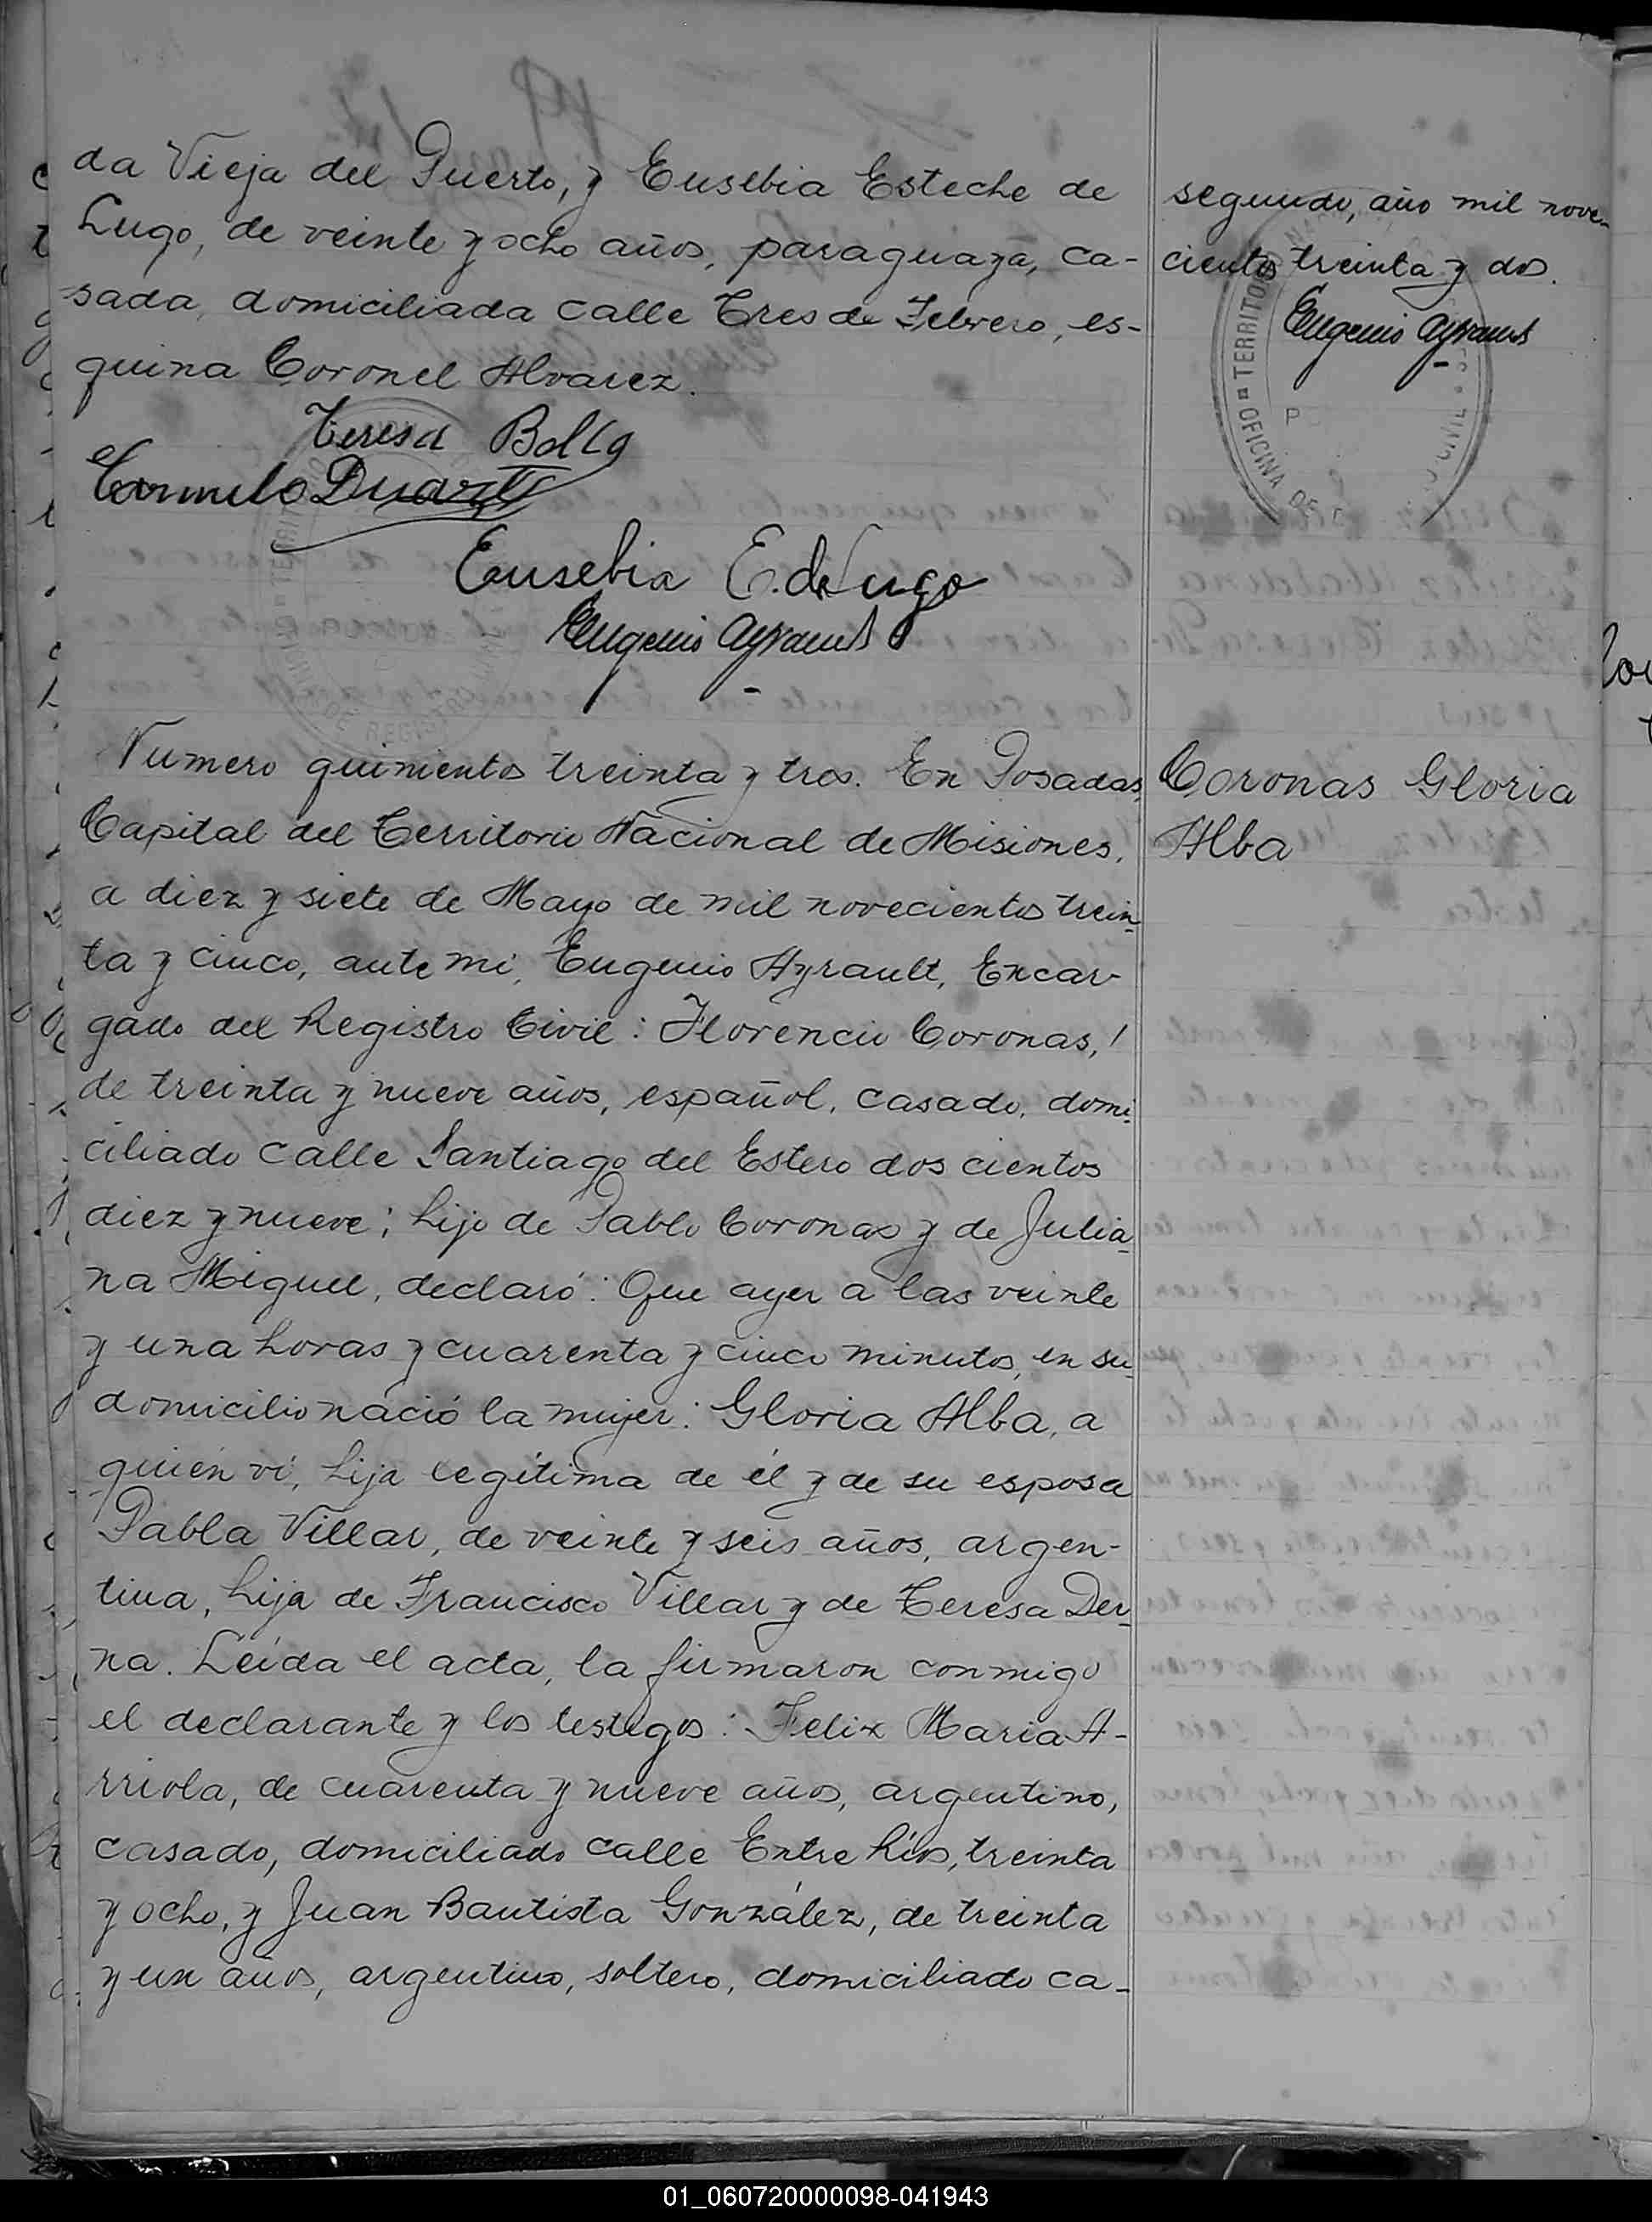 da Vieja del Puerto, y Eusebia Esteche de
Lugo, de veinte y ocho años, paraguaya, ca-
sada, domiciliada calle Tres de Febrero, es-
quina Coronel Alvarez.
Teresa
Duarte
Eusebia E. de Lugo
Eugenio Ayrault
segundo, año mil nove-
cientos treinta y dos.
Eugenio Ayrault
TERRITORIO NA
OFICINA DE
CIVIL
Numero quinientos treinta y tres. En Posadas,
Capital del Territorio Nacional de Misiones,
a diez y siete de Mayo de mil novecientos trein-
ta y cinco, ante mi, Eugenio Ayrault, Encar-
gado del Registro Civil: Florencio Coronas,
de treinta y nueve años, español, casado, domi-
ciliado calle Santiago del Estero dos cientos
diez y nueve; hijo de Pablo Coronas y de Julia-
na Miguel, declaró: Que ayer a las veinte
y una horas y cuarenta y cinco minutos, en su
domicilio nació la mujer: Gloria Alba, a
quién ví, hija legítima de él y de su esposa
Pabla Villar, de veinte y seis años, argen-
tina, hija de Francisco Villar y de Teresa Der-
na. Leída el acta, la firmaron conmigo
el declarante y los testigos: Felix Maria A-
rriola, de cuarenta y nueve años, argentino,
casado, domiciliado calle Entre Ríos, treinta
y ocho, y Juan Bautista González, de treinta
y un años, argentino, soltero, domiciliado ca-
Coronas Gloria
Alba
01_060720000098-041943